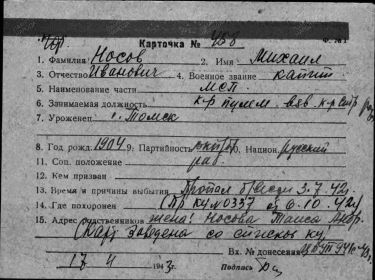 Карточка № 458 Ф. № 1
1. Фамилия Носов 2. Имя Михаил
3. Отчество Иванович 4. Военное звание капит
5. Наименование части мсп
6. Занимаемая должность к-р пулем. взв. к-р стр.
7. Уроженец г. Томск
8. Год рожд. 1904 9. Партийность 10. Национ. русский
11. Соц. положение раб.
12. Кем призван
13. Время и причины выбытия Пропал 3.7.42г.
14. Где похоронен (Пр 0337 6.10.42г)
15. Адрес родственников жена: Носова Таиса Андр.
(Карт заведена со списков ку
Вх. № донесения
17 4 1943г. Подпись